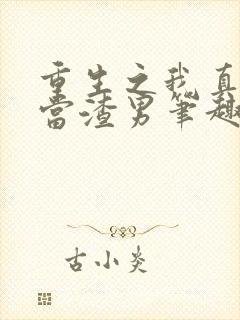 重生之我真
当渣男笔趣
古小炎